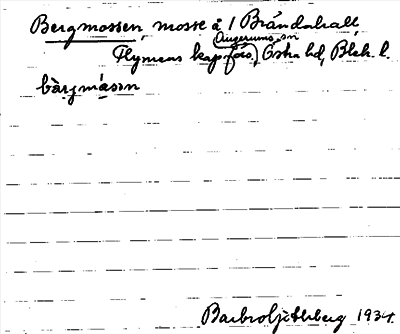 Bergmossen, mosse å 1 Brändahall,
Augerums sn
Flymens kapförs, Östra hd, Blek. l.
bàrjmǻsən
Barbro Ljethberg 1934.